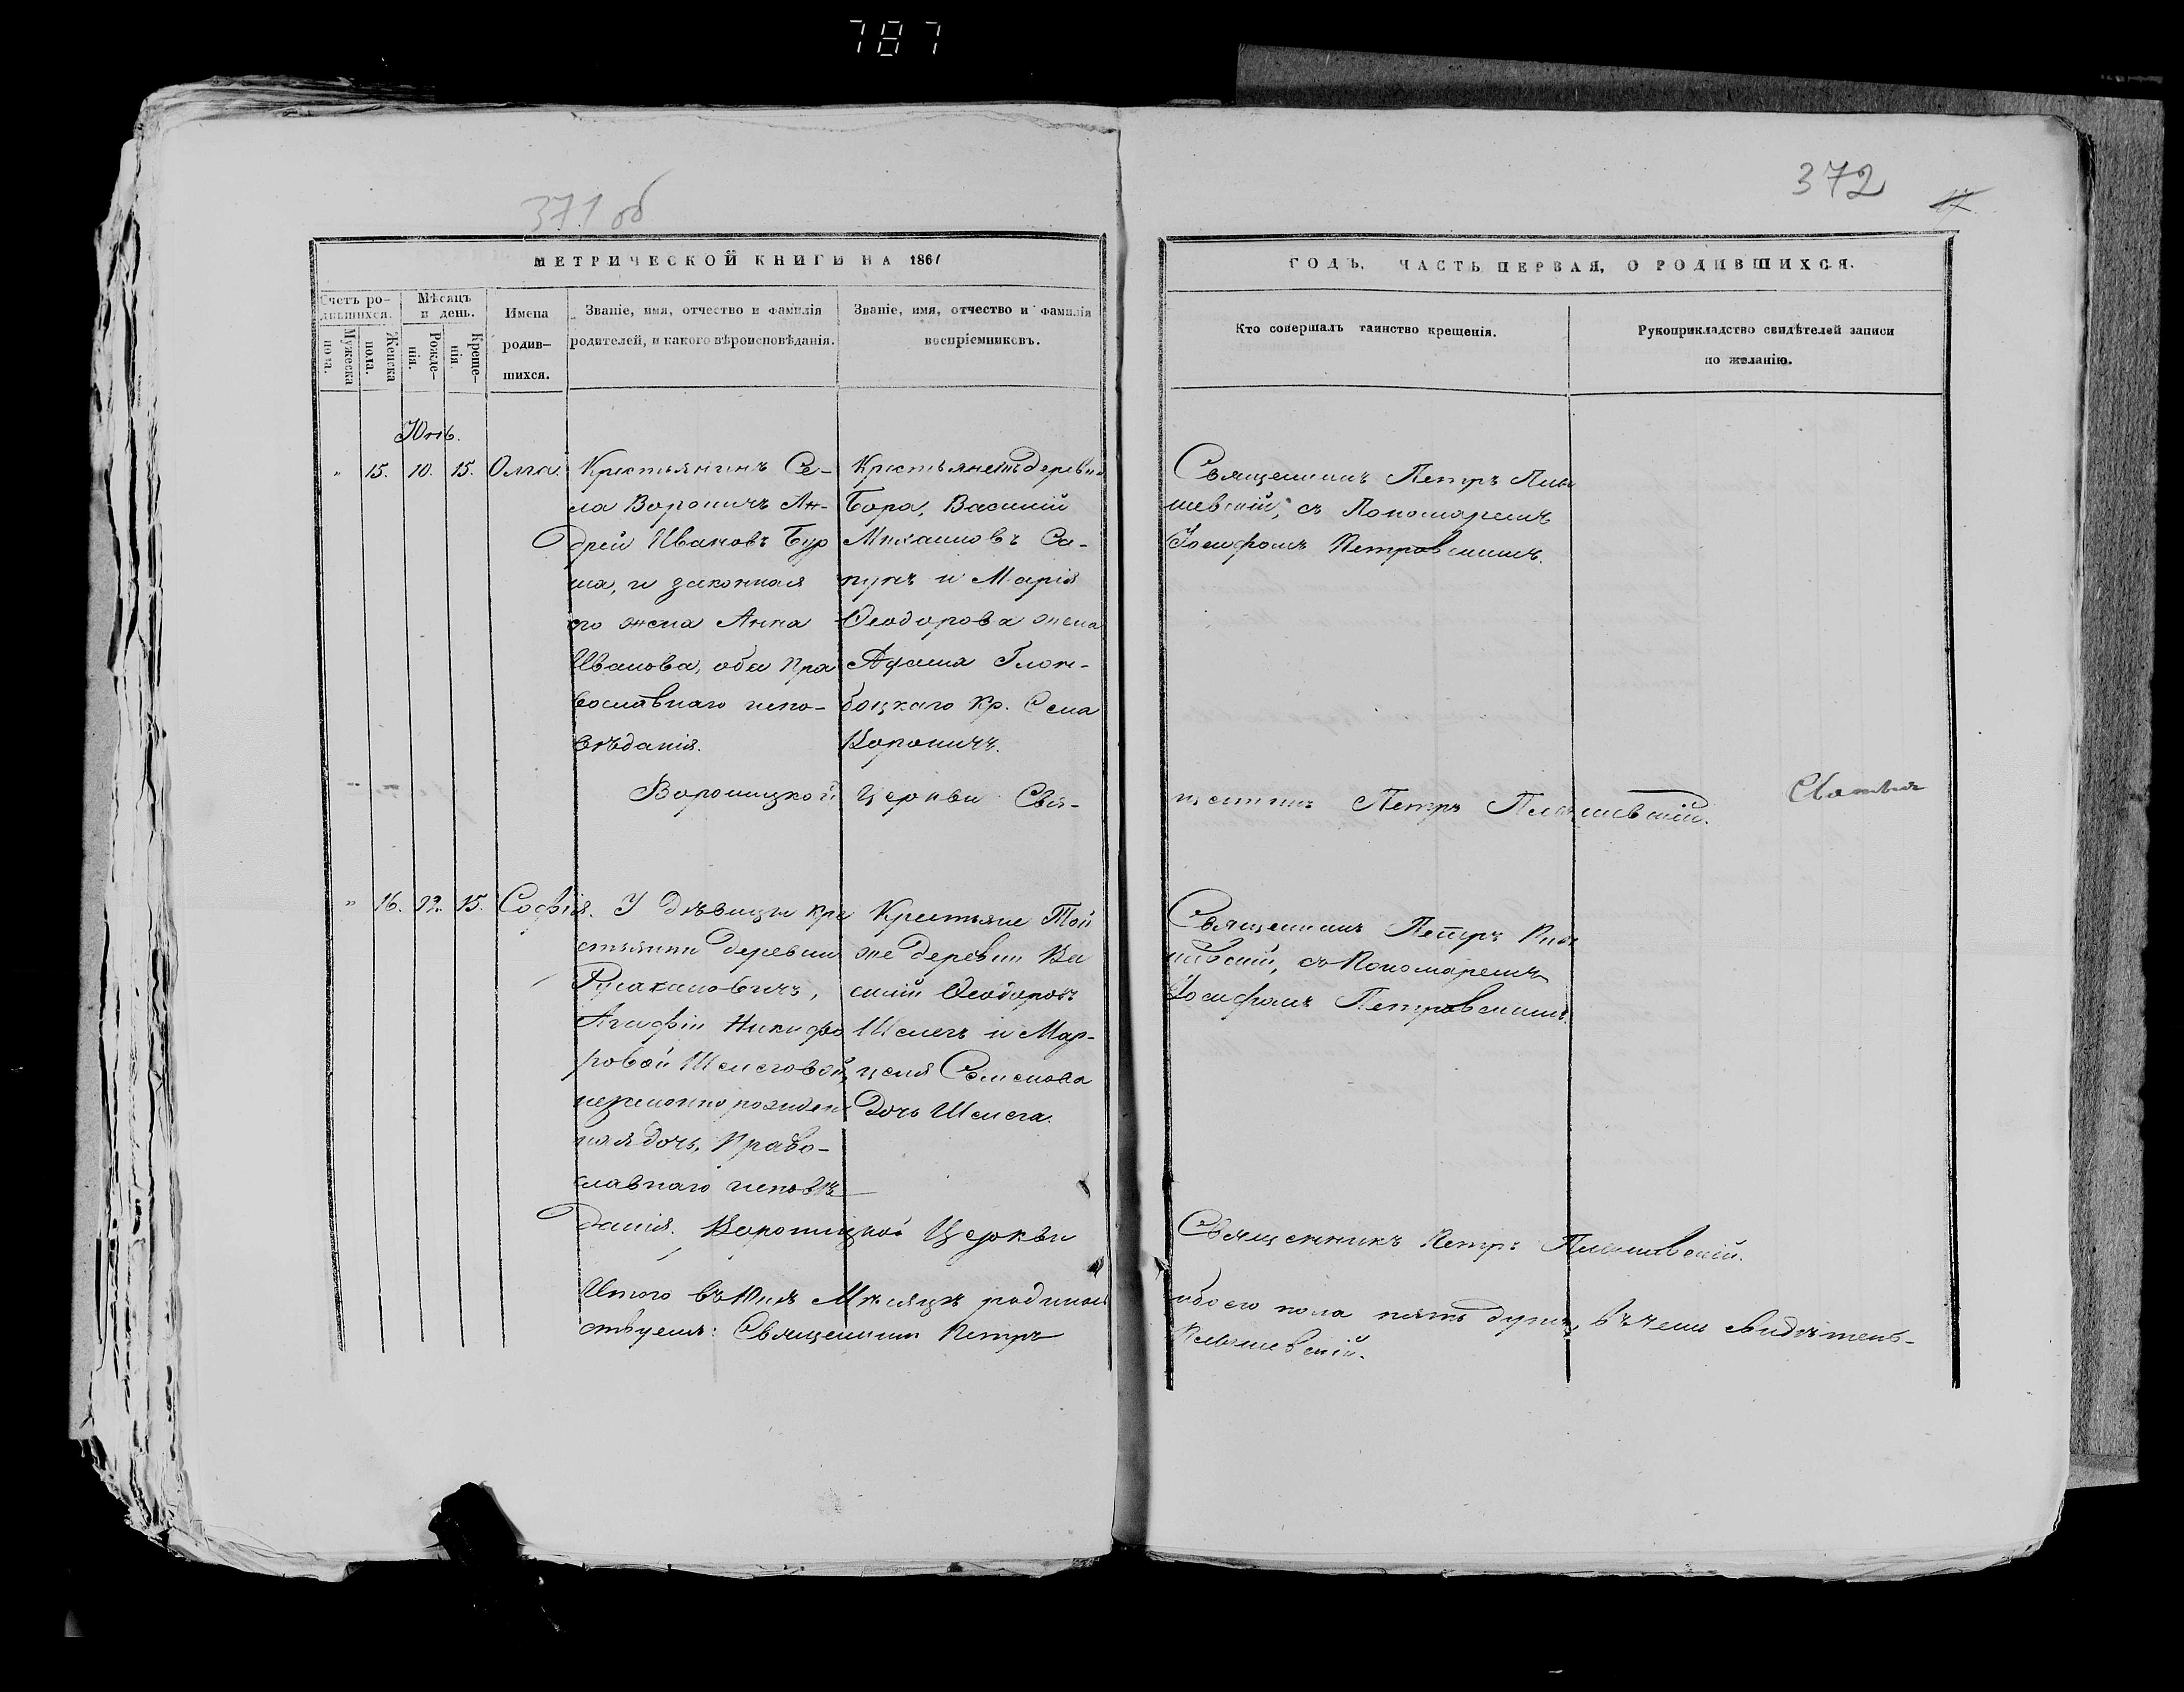 787
371 об
372
17
МЕТРИЧЕСКОЙ КНИГИ НА 1861
ГОДЪ, ЧАСТЬ ПЕРВАЯ, О РОДИВШИХСЯ.
Счетъ родившихся.
Мужеска пола.
Женска пола.
Мѣсяцъ и день.
Рожденія.
Крещенія.
Имена родившихся.
Званіе, имя, отчество и фамилія
родителей, и какого вѣроисповѣданія.
Званіе, имя, отчество и фамилія
воспріемниковъ.
Кто совершалъ таинство крещенія.
Рукоприкладство свидѣтелей записи
по желанію.
" 15. 10. 15. Олга.
Крестьянинъ Се-
ла Вороничъ Ан-
дрей Ивановъ Бур
ша, и законная
его жена Анна
Иванова, оба пра
вославнаго испо-
вѣданія.
деревни
Бора, Василій
Михаиловъ Са-
пунъ и Марія
Ѳеодорова жена
Адама Глом-
боцкаго Кр. Села
Вороничъ.
Священникъ Петръ
съ Пономаремъ
Іосифомъ Петровскимъ.
Вороницкой Церкви Свя-
щенникъ Петръ
" 16. 15. Софія.
У дѣвицы кре
стьянки деревни
Никифо
ровой Шелеговой,
незаконнорожден
ная дочь, Право-
славнаго исповѣ
данія. Вороницкой Церкви
Крестьяне Той
же деревни Ва
силій Ѳеодоровъ
Шелегъ и Мар-
целя Семенова
дочь Шелега.
Священникъ Петръ
съ Пономаремъ
Іосифомъ Петровскимъ.
Священникъ Петръ
Итого въ Мѣсяцѣ родилось
обоего пола пять душъ, въ чемъ свидѣтель-
ствуемъ: Священникъ Петръ